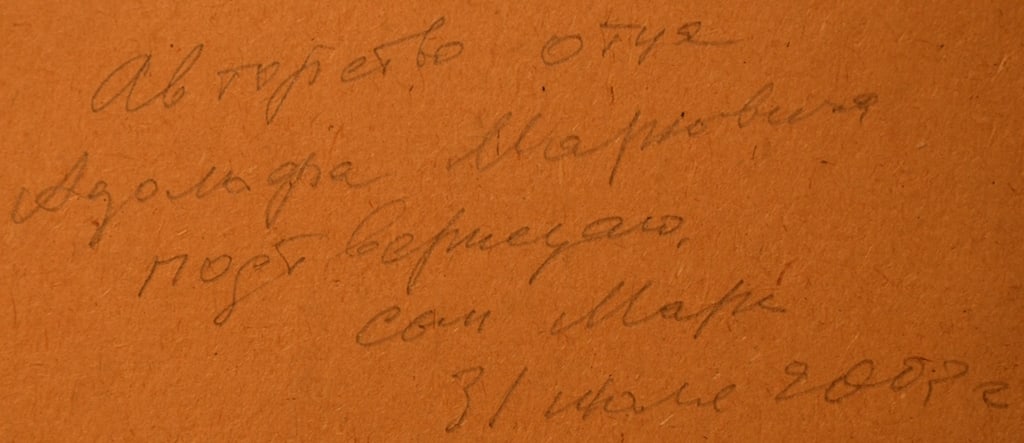 Авторство отца
Адольфа Марковича
подтверждаю.
сын Марк
31 июля 2007 г